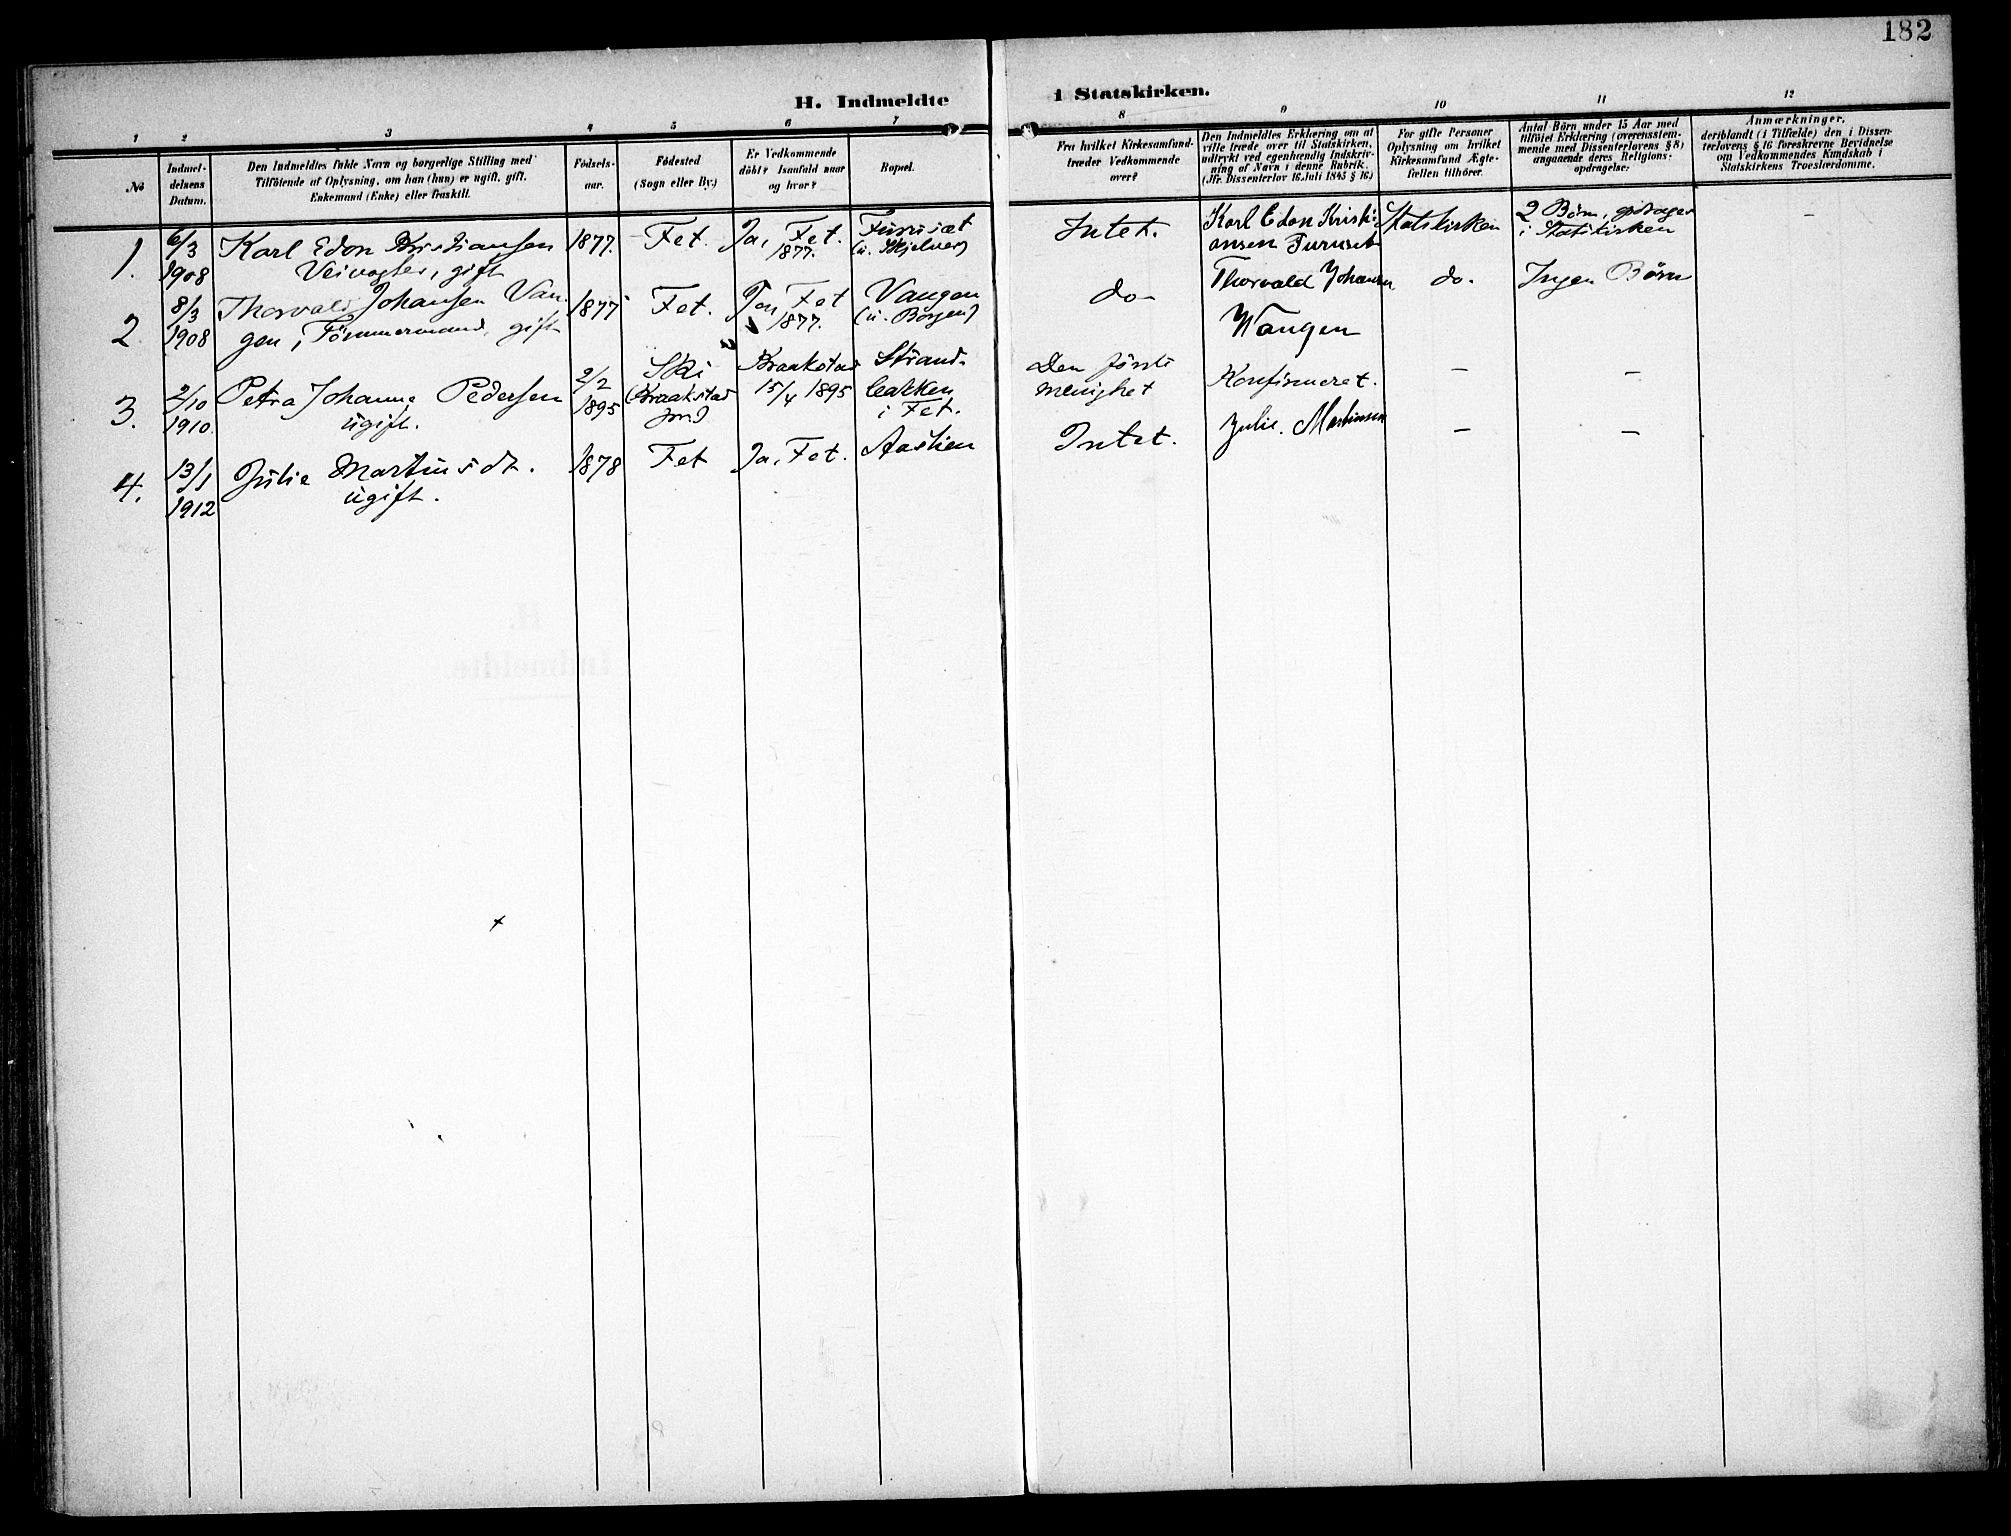 182
H. Indmeldte i Statskirken.
1 2 3 4 5 6 7 8 9 10 11 12
№
Indmel-
delsens
Datum.
Den Indmeldtes fulde Navn og borgerlige Stilling med
Tilföiende af Oplysning, om han (hun) er ugift, gift,
Enkemand (Enke) eller fraskilt.
Födsels-
aar.
Födested
(Sogn eller By.)
Er Vedkommende
döbt? Isaafald naar
og hvor?
Bopæl.
Fra hvilket Kirkesamfund
træder Vedkommende
over?
Den Indmeldtes Erklæring om at
ville træde over til Statskirken,
udtrykt ved egenhændig Indskriv-
ning af Navn i denne Rubrik.
(Jfr. Dissenterlov 16 Juli 1845 § 16)
For gifte Personer
Oplysning om hvilket
Kirkesamfund Ægte-
fællen tilhörer.
Antal Börn under 15 Aar med
tilföiet Erklæring (overensstem-
mende med Dissenterlovens § 8)
angaaende deres Religions-
opdragelse:
Anmærkninger,
deriblandt (i Tilfælde) den i Dissen-
terlovens § 16 foreskrevne Bevidnelse
om Vedkommendes Kundskab i
Statskirkens Troeslærdomme.
1.
6/3
1908
Karl Edon Kristiansen
Veivogter, gift
1877.
Fet.
Ja, Fet.
1877.
Furusæt
(u. Hjelver)
Intet.
Karl Edon Kristi
ansen Furuset
Statskirken
2 Börn, opdrages
i Statskirken
–
2
8/3
1908
Thorvald Johansen Van-
gen, Tömmermand, gift
1877
Fet.
Ja, Fet
1877.
Vangen
(u. Borgen)
do-
Thorvald Johansen
Wangen
do.
Ingen Börn
3.
2/10
1910.
Petra Johanne Pedersen
ugift.
2/2
1895
Ski
(Kraakstad
prgj)
Kraakstad
15/4 1895
Strand-
bakken
i Fet.
Den förste
menighet
Konfirmeret.
–
–
4.
13/1
1912
Julie Martinsdt.
ugift.
1878
Fet
Ja, Fet.
Aaslien
Intet.
Julie. Martinsen
–
–